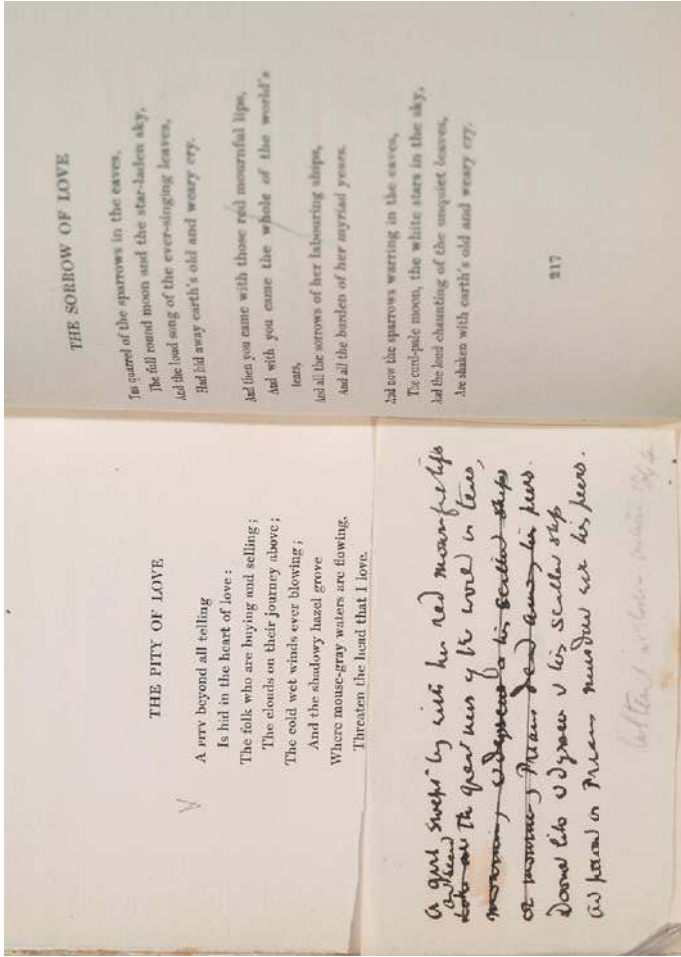 THE PITY OF LOVE
A PITY beyond all telling
Is hid in the heart of love :
The folk who are buying and selling ;
The clouds on their journey above ;
The cold wet winds ever blowing ;
And the shadowy hazel grove
Where mouse-gray waters are flowing,
Threaten the head that I love.
A girl swept by with her red mournful lips
and seemed
the greatness of the world in tears,
Odysseus his scuttled ships
or Priam his peers.
Doomed like Odysseus & his scuttled ships
and proud as Priam murdered with his peers.
THE SORROW OF LOVE
THE quarrel of the sparrows in the eaves,
The full round moon and the star-laden sky,
And the loud song of the ever-singing leaves,
Had hid away earth's old and weary cry.
And then you came with those red mournful lips,
And with you came the whole of the world's
tears,
And all the sorrows of her labouring ships,
And all the burden of her myriad years.
And now the sparrows warring in the eaves,
The curd-pale moon, the white stars in the sky,
And the loud chaunting of the unquiet leaves,
Are shaken with earth's old and weary cry.
217